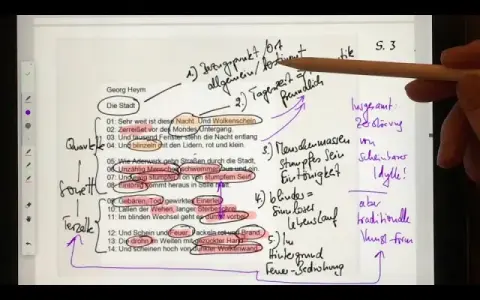 S. 3
1.) Bezugspunkt/Ort
allgemein/
Georg Heym
Die Stadt
2.) Tageszeit =
freundlich
01: Sehr weit ist diese Nacht. Und Wolkenschein
02: Zerreißet vor des Mondes Untergang.
03: Und tausend Fenster stehn die Nacht entlang
04: Und blinzeln mit den Lidern, rot und klein.
05: Wie Aderwerk gehn Straßen durch die Stadt,
06: Unzählig Menschen schwemmen aus und ein.
07: Und ewig stumpfer Ton von stumpfem Sein
08: Eintönig kommt heraus in Stille matt.
09: Gebären, Tod, gewirktes Einerlei,
10: Lallen der Wehen, langer Sterbeschrei,
11: Im blinden Wechsel geht es dumpf vorbei.
12: Und Schein und Feuer, Fackeln rot und Brand,
13: Die drohn im Weiten mit gezückter Hand
14: Und scheinen hoch von dunkler Wolkenwand.
Quartette
Sonett
Terzette
3.) Menschenmassen
stumpfes Sein
Eintönigkeit
4.) blindes =
sinnloser
Lebenslauf
5.) Im
Hintergrund
Feuer-Bedrohung
Insgesamt:
Zerstörung
von
scheinbarer
Idylle!
aber
traditionelle
Kunst-form